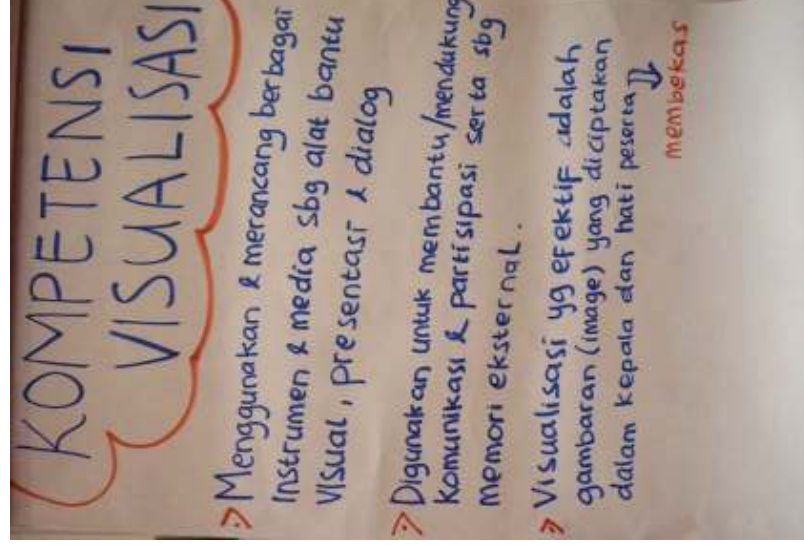 KOMPETENSI
VISUALISASI
Menggunakan & merancang berbagai
Instrumen & media sbg alat bantu
Visual, presentasi & dialog
Digunakan untuk membantu/mendukung
Komunikasi & partisipasi serta sbg
memori eksternal.
Visualisasi yg efektif adalah
gambaran (image) yang diciptakan
dalam kepala dan hati peserta
membekas